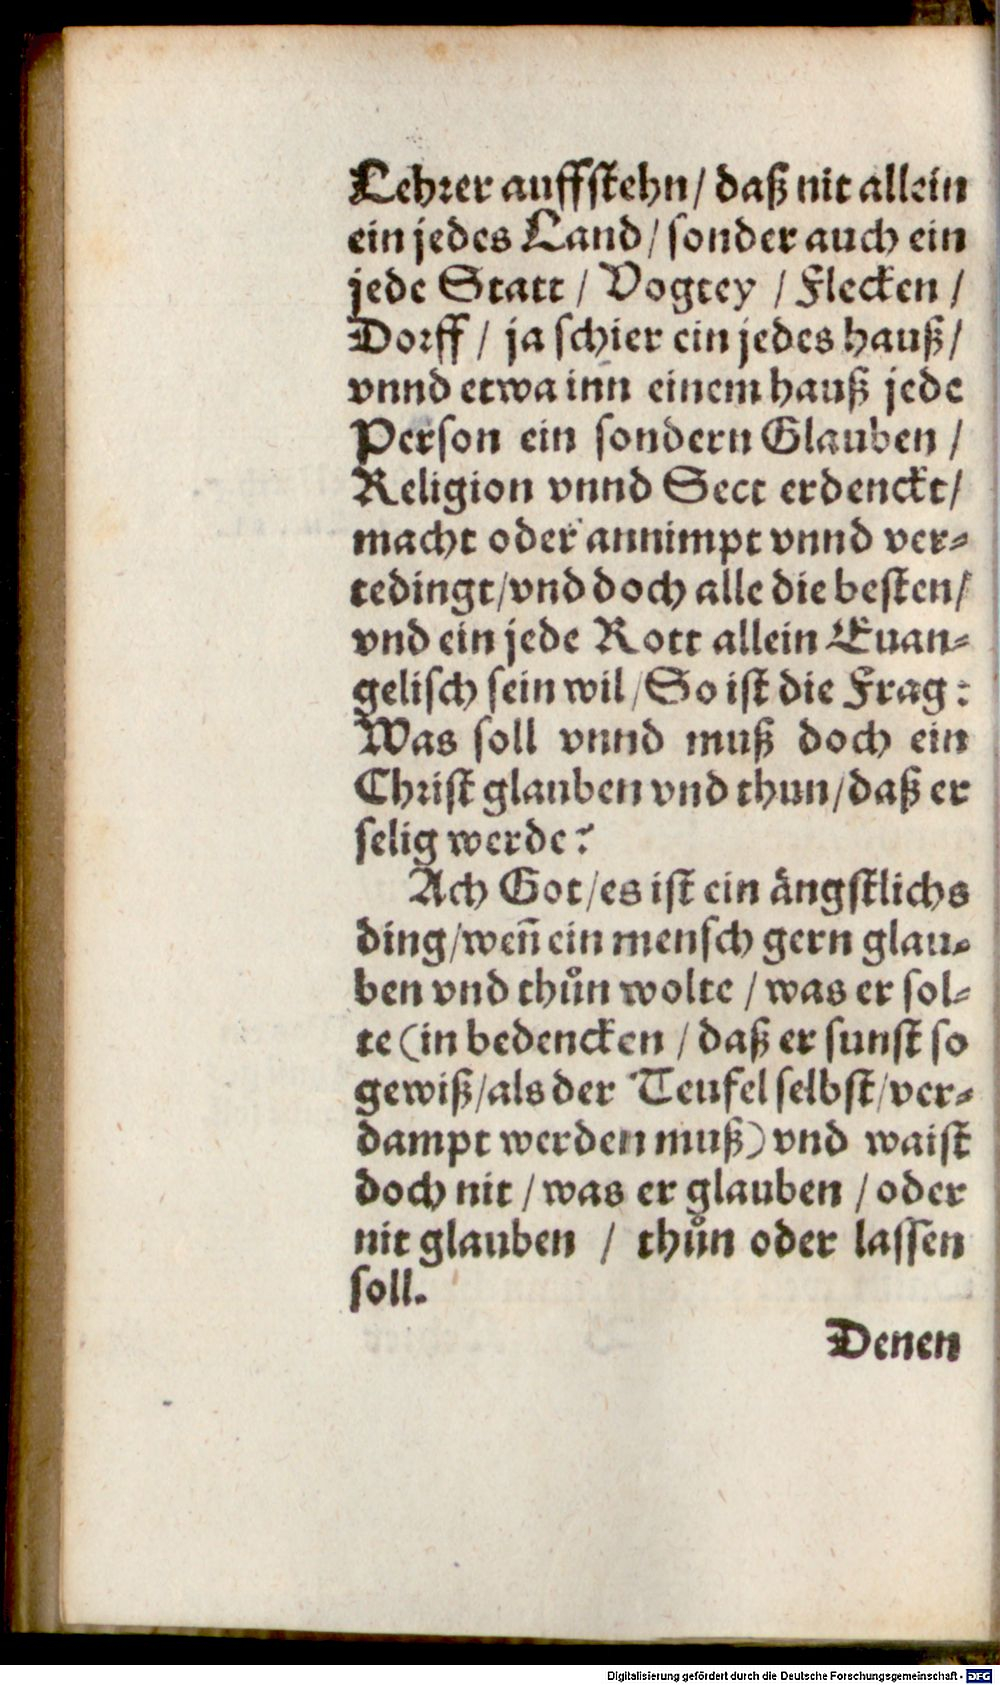 Lehrer auffstehn / daß nit allein
ein jedes Land / sonder auch ein
jede Statt / Vogtey / Flecken /
Dorff / ja schier ein jedes hauß /
vnnd etwa inn einem hauß jede
Person ein sondern Glauben /
Religion vnnd Sect erdenckt /
macht oder annimpt vnnd ver-
tedingt / vnd doch alle die besten /
vnd ein jede Rott allein Euan-
gelisch sein wil / So ist die Frag:
Was soll vnnd muß doch ein
Christ glauben vnd thun / daß er
selig werde?
Ach Got / es ist ein ängstlichs
ding / weñ ein mensch gern glau-
ben vnd thůn wolte / was er sol-
te (in bedencken / daß er sunst so
gewiß / als der Teufel selbst / ver-
dampt werden muß) vnd waist
doch nit / was er glauben / oder
nit glauben / thůn oder lassen
soll.
Denen
Digitalisierung gefördert durch die Deutsche Forschungsgemeinschaft - DFG